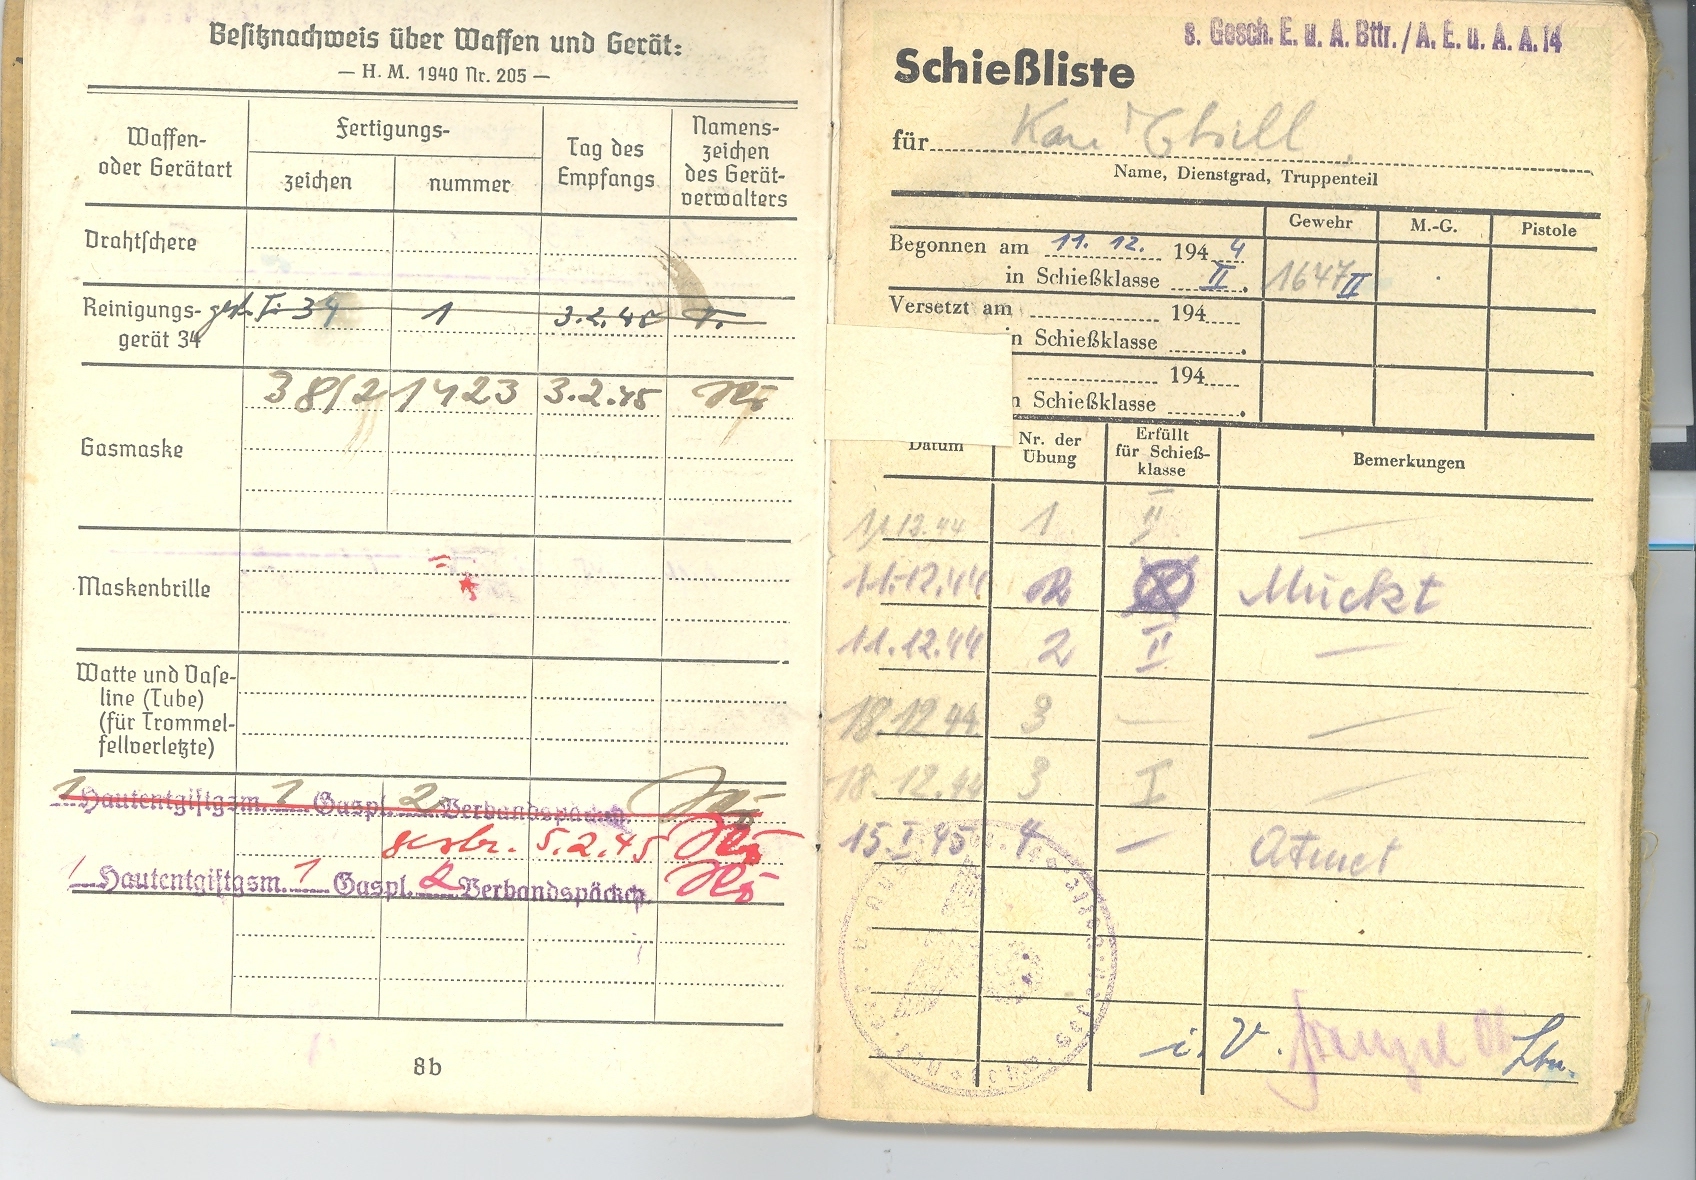 Besitznachweis über Waffen und Gerät:
— H. M. 1940 Nr. 205 —
Waffen-
oder Gerätart
Fertigungs-
zeichen
nummer
Tag des
Empfangs
Namens-
zeichen
des Gerät-
verwalters
Drahtschere
Reinigungs-
gerät 34
34 1 3.2.45
Gasmaske
38/2 1423 3.2.45
Maskenbrille
Watte und Vase-
line (Tube)
(für Trommel-
fellverletzte)
1 Hautentgiftgsm. 1 Gaspl. 2 Verbandspäckch.
gestr. 5.2.45
1 Hautentgiftgsm. 1 Gaspl. 2 Verbandspäckch.
8b
s. Gesch. E. u. A. Bttr. / A. E. u. A. A. 14
Schießliste
für
Name, Dienstgrad, Truppenteil
Gewehr M.-G. Pistole
Begonnen am 11. 12. 194 4
in Schießklasse II. 1647 II
Versetzt am 194
in Schießklasse
194
n Schießklasse
Datum
Nr. der
Übung
Erfüllt
für Schieß-
klasse
Bemerkungen
11.12.44 1 II —
11.12.44 2 Muckt
11.12.44 2 II —
18.12.44 3 — —
18.12.44 3 I —
15.I.45 4 — Atmet
i. V.